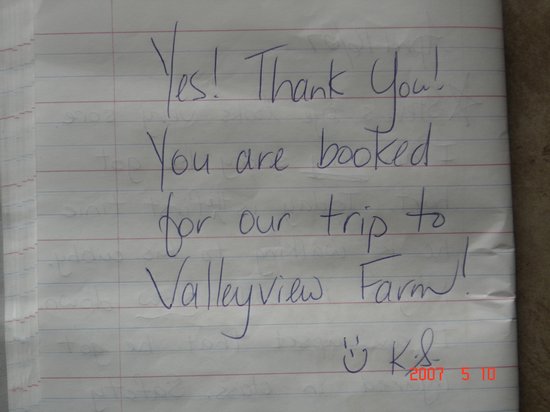 Yes! Thank You!
You are booked
for our trip to
Valleyview Farm!
K.S.
2007 5 10